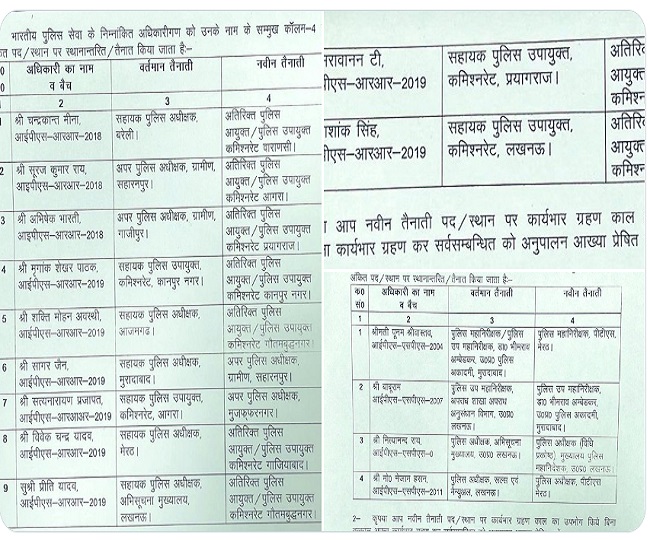 भारतीय पुलिस सेवा के निम्नांकित अधिकारीगण को उनके नाम के सम्मुख कॉलम-4
पद/स्थान पर स्थानान्तरित/तैनात किया जाता है:-
अधिकारी का नाम व बैच
वर्तमान तैनाती
नवीन तैनाती
2
3
4
श्री चन्द्रकान्त मीना,
आईपीएस-आरआर-2018
सहायक पुलिस अधीक्षक,
बरेली।
अतिरिक्त पुलिस
आयुक्त/पुलिस उपायुक्त
कमिश्नरेट वाराणसी।
2
श्री सूरज कुमार राय,
आइपीएस-आरआर-2018
अपर पुलिस अधीक्षक, ग्रामीण,
सहारनपुर।
अतिरिक्त पुलिस
आयुक्त/पुलिस उपायुक्त
कमिश्नरेट आगरा।
3
श्री अभिषेक भारती,
आइपीएस-आरआर-2018
अपर पुलिस अधीक्षक, ग्रामीण,
गाजीपुर।
अतिरिक्त पुलिस
आयुक्त/पुलिस उपायुक्त
कमिश्नरेट प्रयागराज।
4
श्री मृगांक शेखर पाठक,
आईपीएस-आरआर-2019
सहायक पुलिस उपायुक्त,
कमिश्नरेट, कानपुर नगर।
अतिरिक्त पुलिस
आयुक्त/पुलिस उपायुक्त
कमिश्नरेट कानपुर नगर।
5
श्री शक्ति मोहन अवस्थी,
आईपीएस-आरआर-2019
सहायक पुलिस अधीक्षक,
आजमगढ।
अतिरिक्त पुलिस
आयुक्त/पुलिस उपायुक्त
कमिश्नरेट गौतमबुद्धनगर।
6
श्री सागर जैन,
आईपीएस-आरआर-2019
सहायक पुलिस अधीक्षक,
मुरादाबाद।
अपर पुलिस अधीक्षक
ग्रामीण, सहारनपुर।
7
श्री सत्यनारायण प्रजापत,
आईपीएस-आरआआर-2019
सहायक पुलिस उपायुक्त,
कमिश्नरेट, आगरा।
अपर पुलिस अधीक्षक,
मुजफ्फरनगर।
8
श्री विवेक चन्द्र यादव,
आईपीएस-आरआर-2019
सहायक पुलिस अधीक्षक,
मेरठ।
अतिरिक्त पुलिस
आयुक्त/पुलिस उपायुक्त
कमिश्नरेट गाजियाबाद।
9
सुश्री प्रीति यादव,
आईपीएस-आरआर-2019
सहायक पुलिस अधीक्षक,
अभिसूचना मुख्यालय,
लखनऊ।
अतिरिक्त पुलिस
आयुक्त/पुलिस उपायुक्त
कमिश्नरेट गौतमबुद्धनगर।
सहायक पुलिस उपायुक्त,
कमिश्नरेट, प्रयागराज।
सिंह,
सहायक पुलिस उपायुक्त,
कमिश्नरेट, लखनऊ।
आप नवीन तैनाती पद/स्थान पर कार्यभार ग्रहण काल
कार्यभार ग्रहण कर सर्वसम्बन्धित को अनुपालन आख्या प्रेषित
अंकित पद/स्थान पर स्थानान्तरित/तैनात किया जाता है:-
क्र0
सं0
अधिकारी का नाम
व बैच
वर्तमान तैनाती
नवीन तैनाती
1
2
3
4
1
श्रीमती पूनम श्रीवास्तव,
आईपीएस-एसपीएस-2004
पुलिस महानिरीक्षक/पुलिस
उप महानिरीक्षक, डा0 भीमराव
अम्बेडकर, उ0प्र0 पुलिस
अकादमी, मुरादाबाद।
पुलिस महानिरीक्षक, पीटीएस,
मेरठ।
2
श्री बाबूराम
आईपीएस-एसपीएस-2007
पुलिस उप महानिरीक्षक,
अपराध शाखा अपराध
अनुसंधान विभाग, उ0प्र0
लखनऊ।
पुलिस उप महानिरीक्षक,
डा0 भीमराव अम्बेडकर,
उ0प्र0 पुलिस अकादमी,
मुरादाबाद।
3
श्री नित्यानन्द राय,
पुलिस अधीक्षक, अभिसूचना
मुख्यालय, उ0प्र0 लखनऊ।
पुलिस अधीक्षक (विधि
प्रकोष्ठ) मुख्यालय पुलिस
महानिदेशक, उ0प्र0 लखनऊ
4
श्री मो0 नेजाम हसन,
आईपीएस-एसपीएस-2011
पुलिस अधीक्षक, रूल्स एवं
मैन्युअल, लखनऊ।
पुलिस अधीक्षक, पीटीएस
मेरठ।
2- कृपया आप नवीन तैनाती पद/स्थान पर कार्यभार ग्रहण काल का उपभोग किये बिना